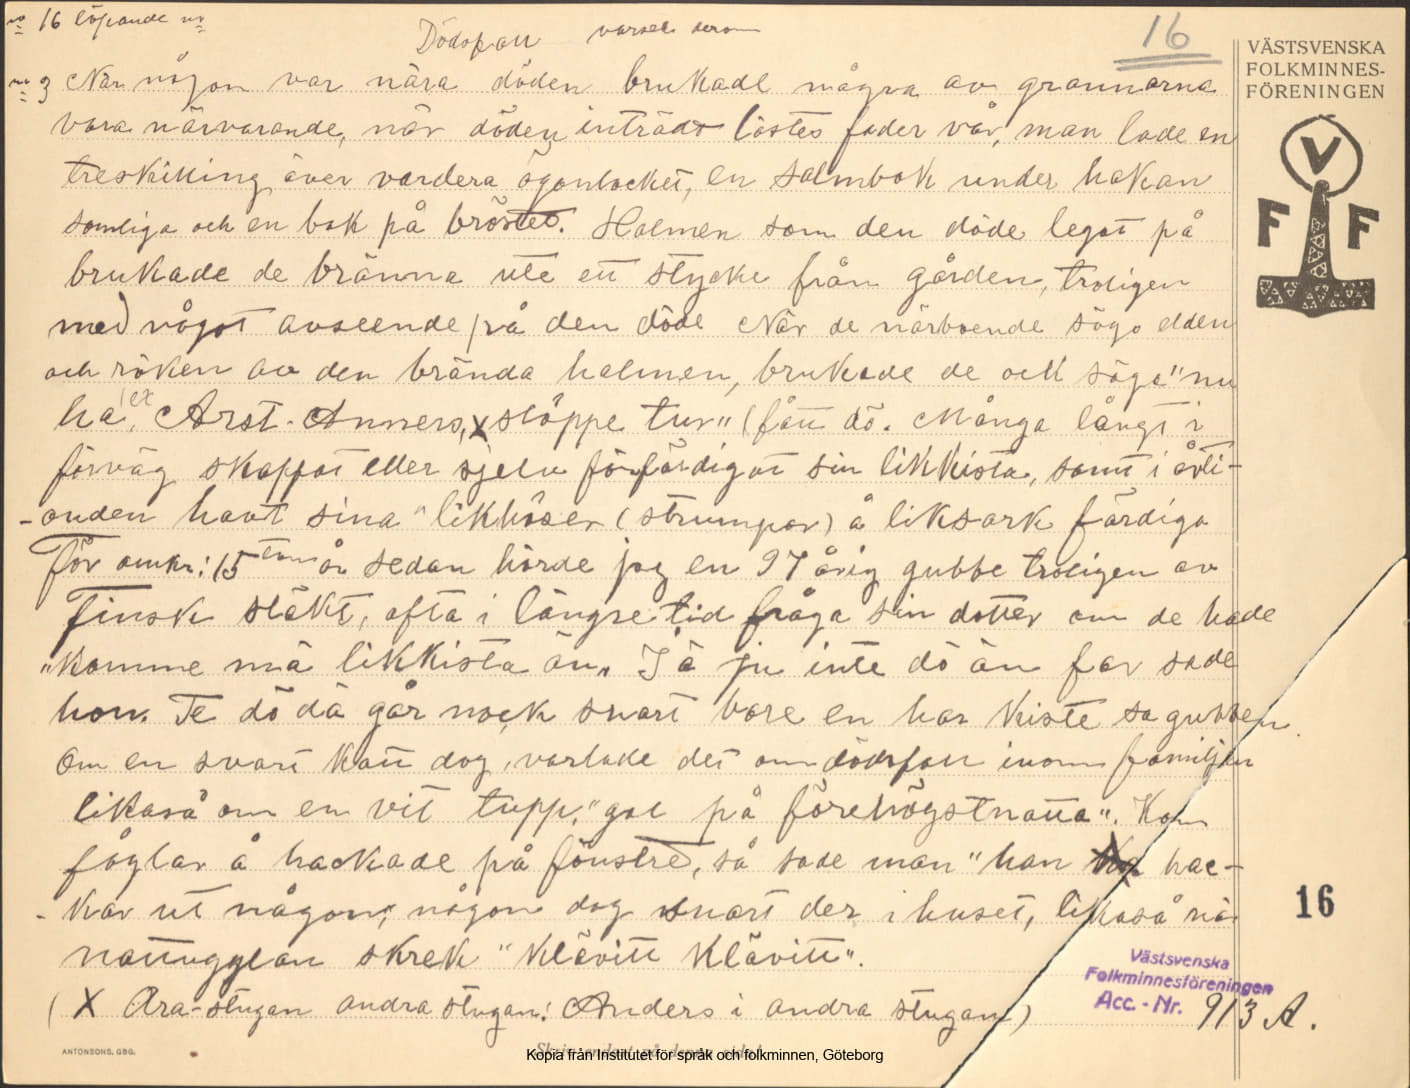 no 16 löpande no
Dödsfall varsel derom
16
VÄSTSVENSKA
FOLKMINNES-
FÖRENINGEN
V
F F
no 3 När någon var nära döden brukade några av grannarna
vara närvarande, när döden inträdt lästes fader vår, man lade en
treskilling över vardera ögonlocket, en salmbok under hakan
somliga och en bok på bröstet. Halmen som den döde legat på
brukade de bränna ute ett stycke från gården, troligen
med något avseende på den döde När de närboende sågo elden
och röken av den brända halmen, brukade de och säga "nu
ha, (ex Arst. Anners, X släppe tur" (fått dö. Många långt i
förväg skaffat eller sjelv förfärdigat sin likkista, samt i årti-
-onden havt sina "likhåser (strumpor) å liksark färdiga
För omkr: 15 år sedan hörde jag en 97 årig gubbe troligen av
Finsk släkt, ofta i längre tid fråga sin dotter om de hade
"komme mä likkista än" I ä ju inte dö än far sade
hon. Te dö dä går nock snart bare en har kiste sa gubben.
Om en svart katt dog, varslade det om dödsfall inom familjen
likaså om en vit tupp, "gol på förehögstnatta". Kom
fåglar å hackade på fönstret, så sade man "han hac-
-kar ut någon, någon dog snart der i huset, likaså när
nattugglan skrek "klävitt klävitt".
( X Ara-stugan andra stugan: Anders i andra stugan)
16
Västsvenska
Folkminnesföreningen
Acc. - Nr. 913 A.
ANTONSONS, GBG.
Kopia från Institutet för språk och folkminnen, Göteborg